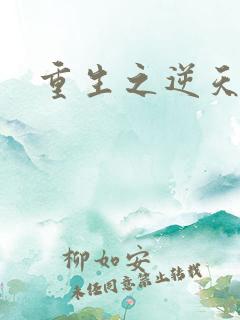 重生之逆天
柳如安
未经同意禁止转载